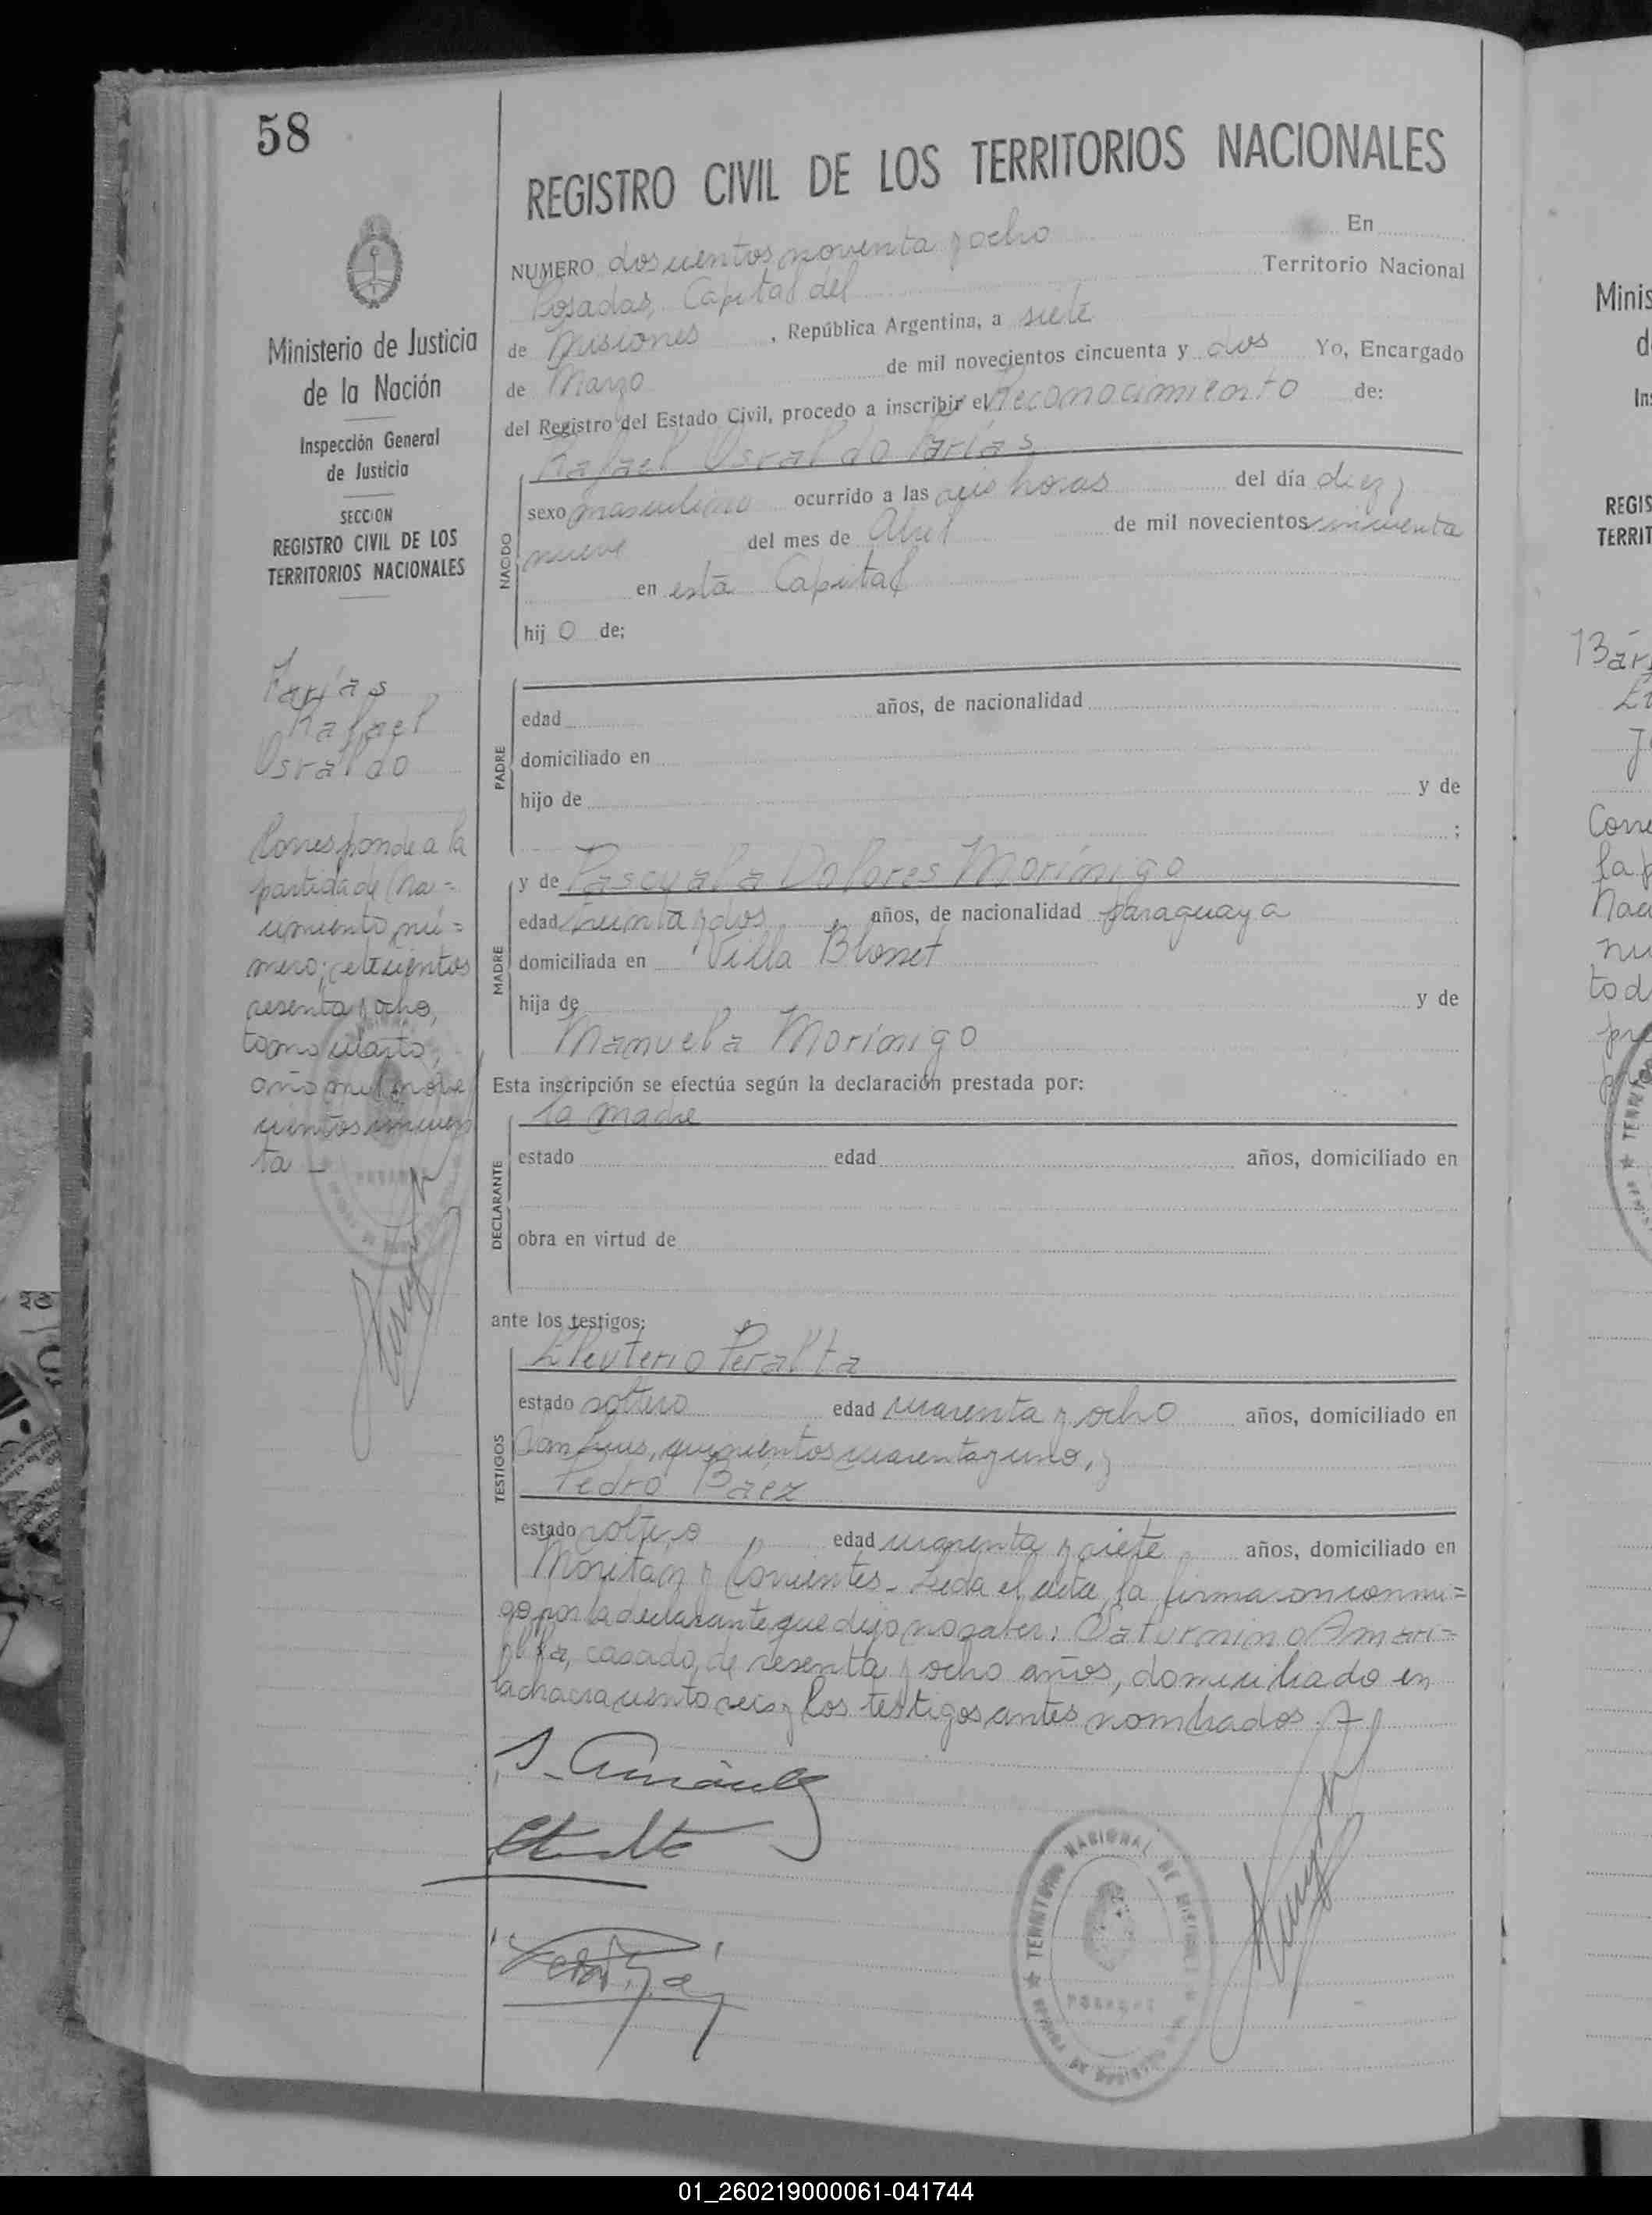 58
REGISTRO CIVIL DE LOS TERRITORIOS NACIONALES
NUMERO doscientos noventa y ocho En
Posadas, Capital del Territorio Nacional
de Misiones , República Argentina, a siete
de Marzo de mil novecientos cincuenta y dos Yo, Encargado
del Registro del Estado Civil, procedo a inscribir el Reconocimiento de:
Rafael Osvaldo Farías
NACIDO
sexo masculino ocurrido a las seis horas del día diez y
nueve del mes de Abril de mil novecientos cincuenta
en esta Capital
hij o de;
PADRE
edad años, de nacionalidad
domiciliado en
hijo de y de
;
MADRE
y de Pascuala Dolores Morínigo
edad treinta y dos años, de nacionalidad paraguaya
domiciliada en Villa Blosset
hija de y de
Manuela Morínigo
Esta inscripción se efectúa según la declaración prestada por:
DECLARANTE
la madre
estado edad años, domiciliado en
obra en virtud de
ante los testigos:
TESTIGOS
Eleuterio Peralta
estado soltero edad cuarenta y ocho años, domiciliado en
San Luis, quinientos cuarenta y uno, y
Pedro Báez
estado soltero edad cuarenta y siete años, domiciliado en
y Corrientes. Leida el acta, la firma con conmi=
go por la declarante que dijo no saber: Saturnino Amari=
lla, casado, de sesenta y ocho años, domiciliado en
la chacra ciento seis y los testigos antes nombrados
TERRITORIO NACIONAL DE MISIONES
POSADAS
Ministerio de Justicia
de la Nación
Inspección General
de Justicia
SECCION
REGISTRO CIVIL DE LOS
TERRITORIOS NACIONALES
Farías
Rafael
Osvaldo
Corresponde a la
partida de Na=
cimiento nú=
mero; setecientos
sesenta y ocho,
tomo cuarto,
año mil nove
cientos cincuen
ta
Minis
d
In
REGIS
TERRIT
Bár
J
Corre
la p
Naci
nu
to d
01_260219000061-041744